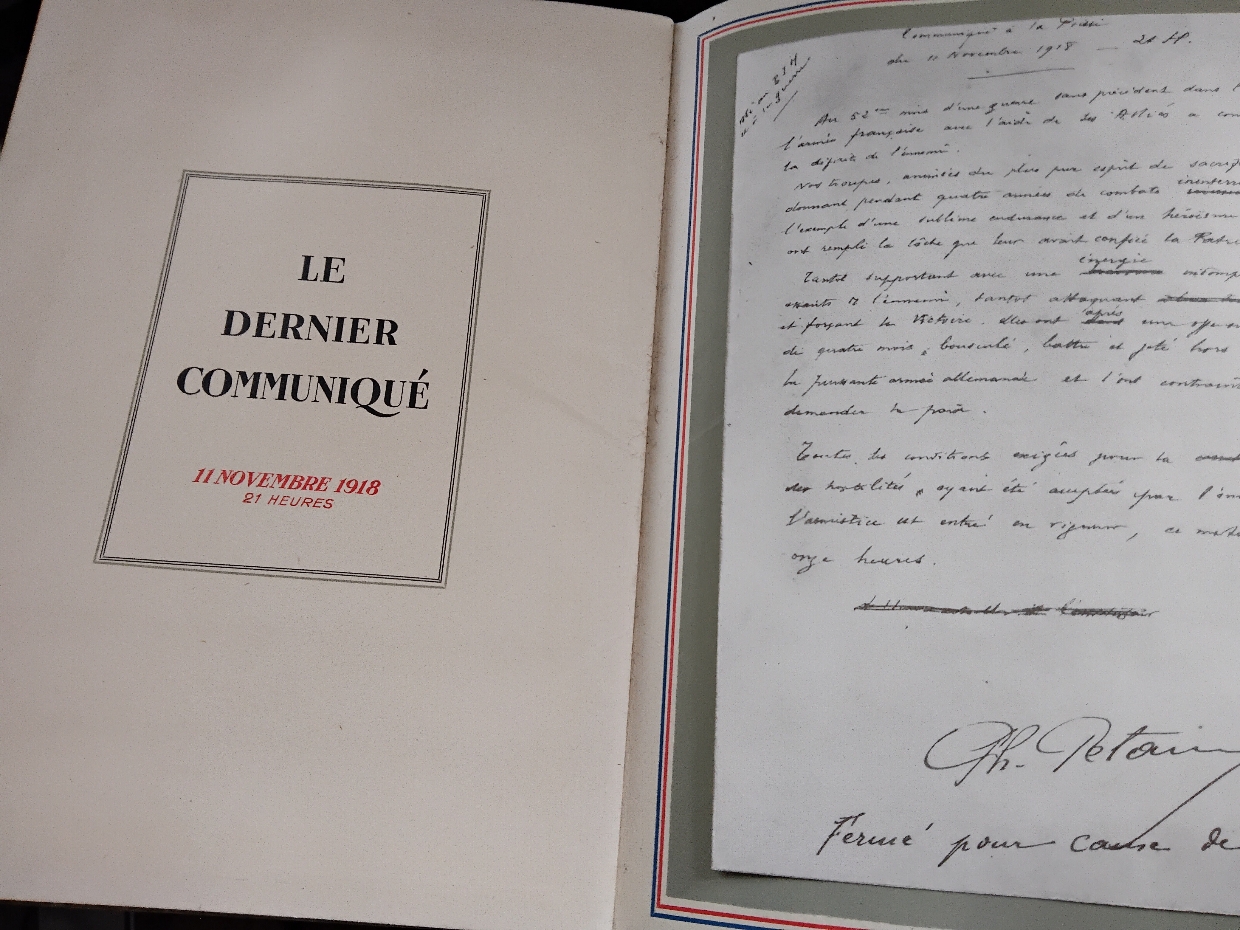 LE
DERNIER
COMMUNIQUÉ
11 NOVEMBRE 1918
21 HEURES
Communiqué à la Presse
du 11 Novembre 1918 — 21 H.
Au 52ème mois d'une guerre sans précédent dans
l'armée française avec l'aide de ses Alliés a
la défaite de l'ennemi.
Nos troupes, animées du plus pur esprit de
donnant pendant quatre années de combats
l'exemple d'une sublime endurance et d'un héroïsme
ont rempli la tâche que leur avait confiée la Patrie
Tantôt supportant avec une énergie
de l'ennemi, tantôt attaquant
et forçant la Victoire. Elles ont après une
de quatre mois, bousculé, battu et jeté hors
la puissante armée allemande et l'ont
demander la paix.
Toutes les conditions exigées pour la
des hostilités, ayant été acceptées par
l'armistice est entré en vigueur, ce
onze heures.
Ph. Pétain
Fermé pour cause de